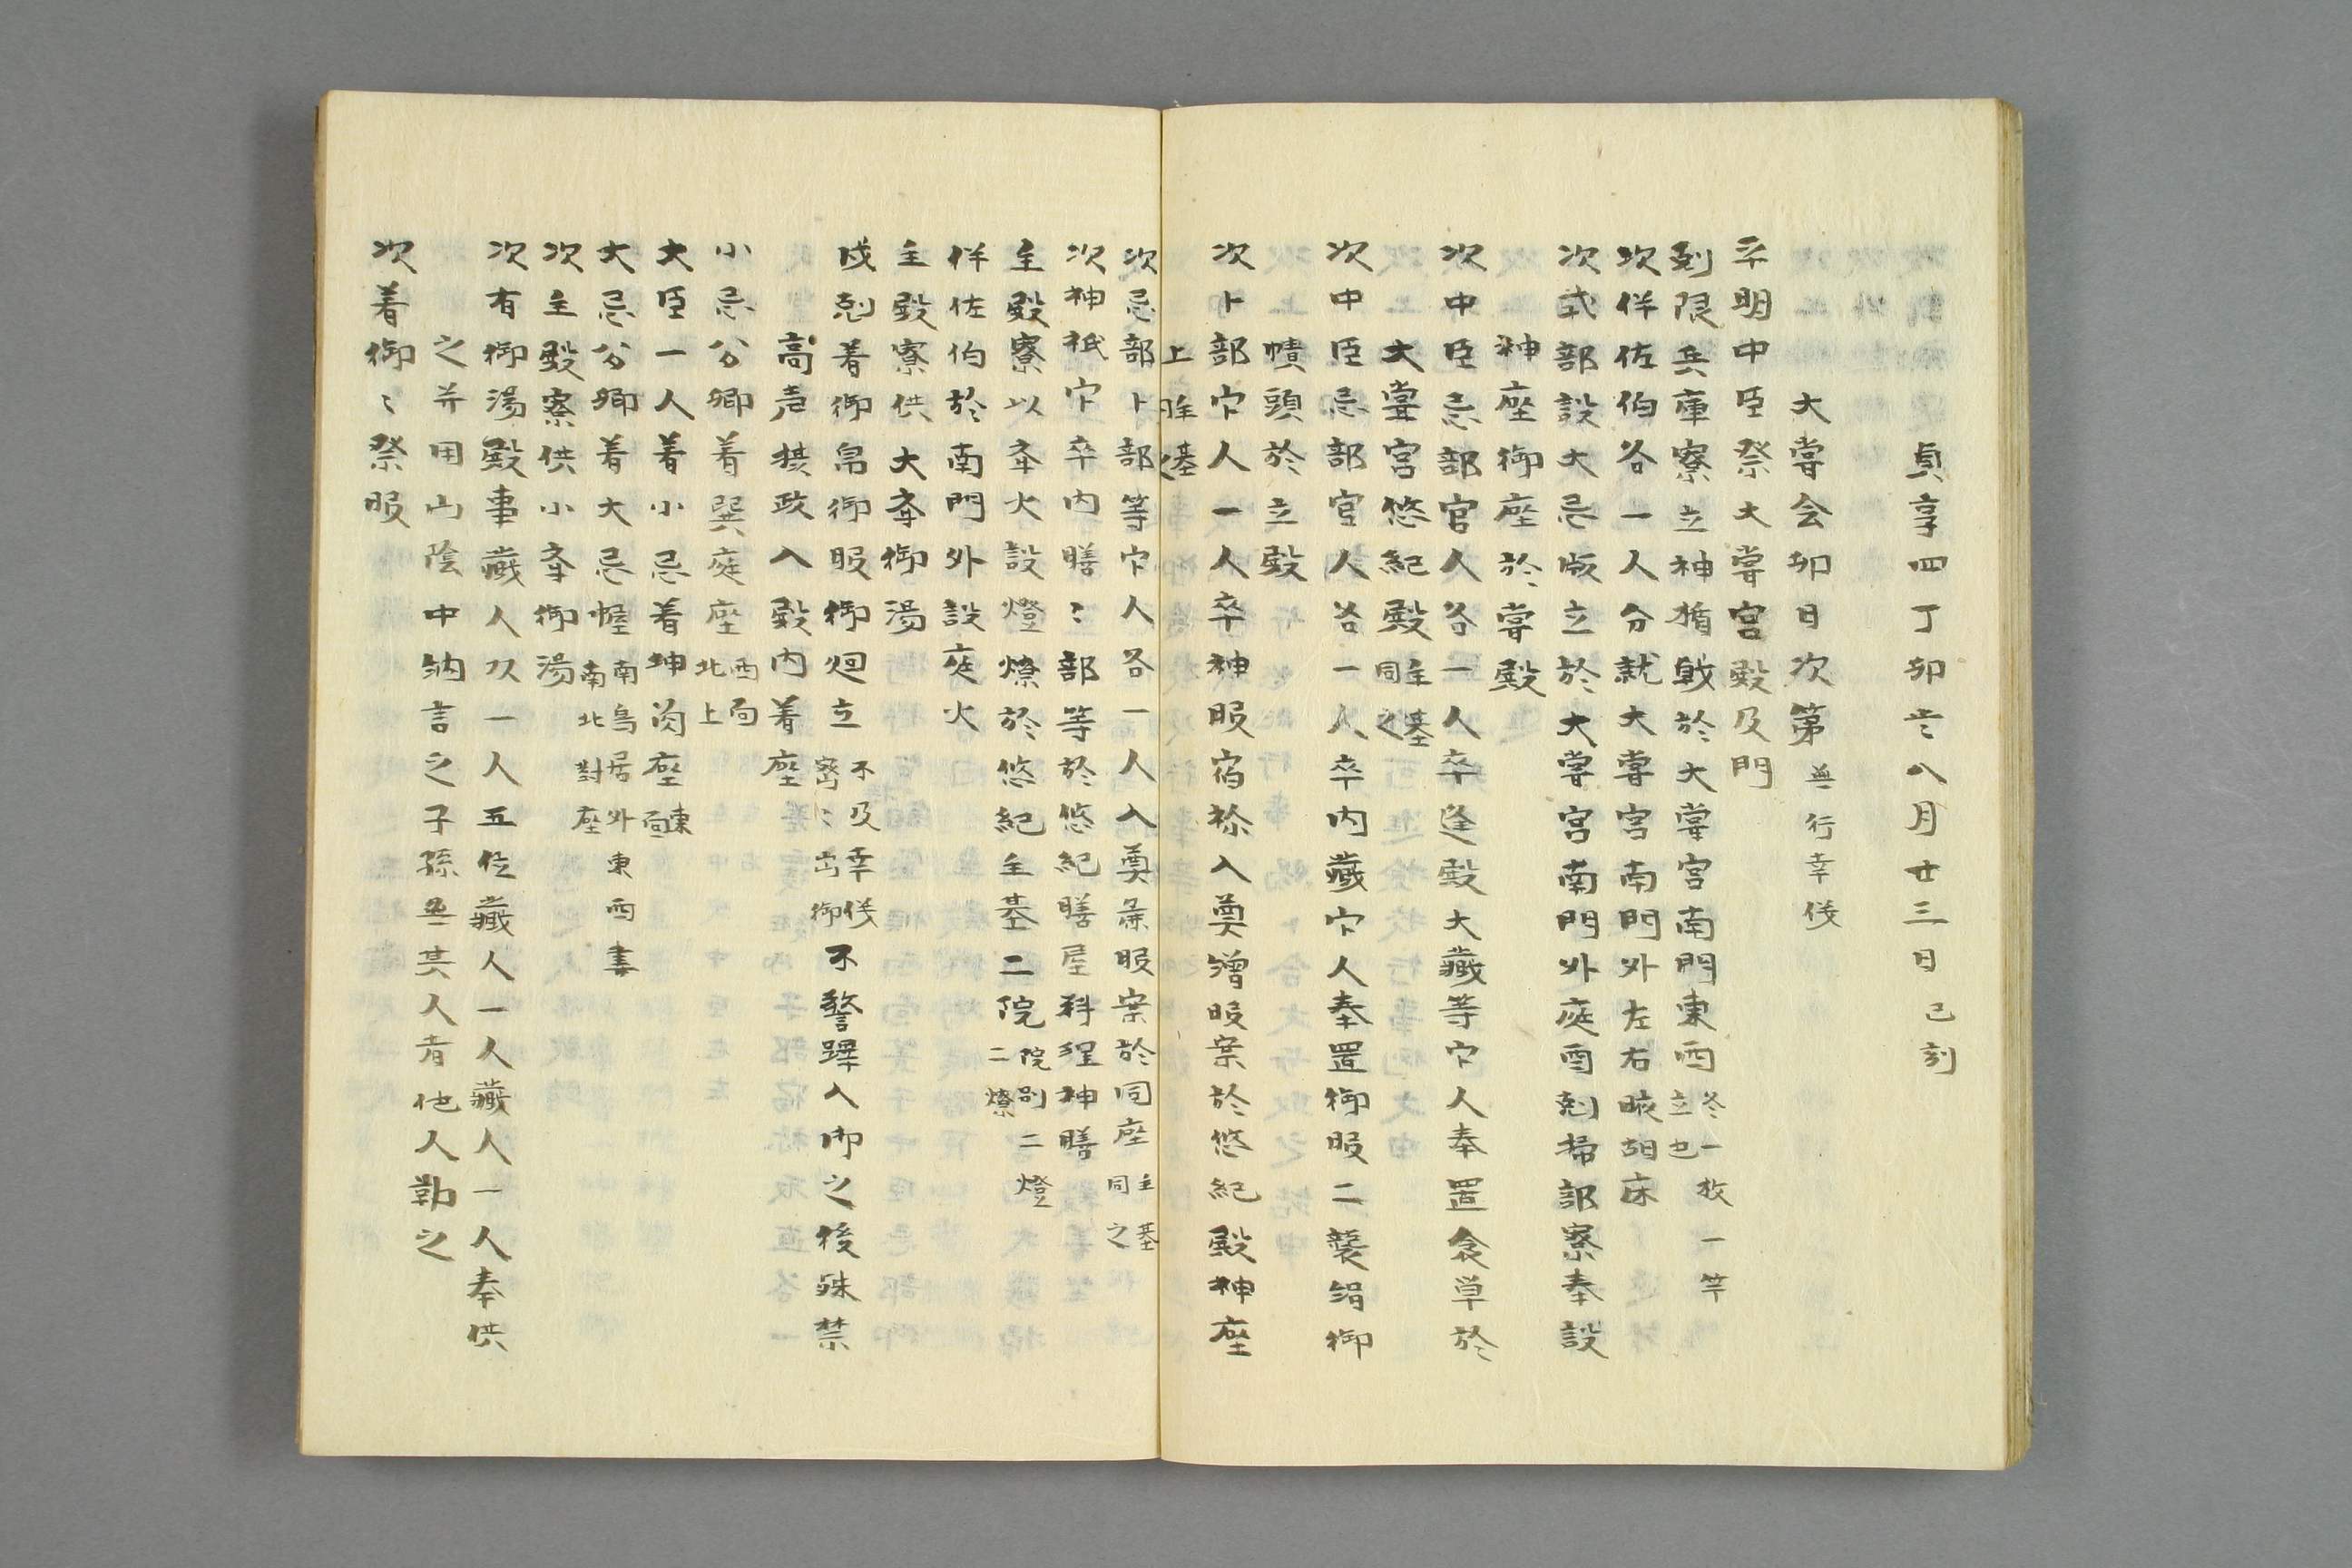 貞享四丁卯季八月廿三日 己刻
大嘗会卯日次第 無行幸儀
平明中臣祭大嘗宮殿及門
剋限兵庫寮立神楯戟於大嘗宮南門東西 冬一枚一竿立也
次伴佐伯各一人分就大嘗宮南門外左右腋胡床
次式部設大忌版立於大嘗宮南門外庭酉剋掃部寮奉設
神座御座於嘗殿
次中臣忌部官人各一人卒逢殿大蔵等官人奉置衾単於
大嘗宮悠紀殿 主基同之
次中臣忌部官人各一人卒内蔵官人奉置御服二襲絹御
幘頭於立殿
次卜部官人一人卒神服宿祢入奠繒服案於悠紀殿神座
上 主基
次忌部卜部等官人各一人入奠麁服案於同座 主基同之
次神祇官卒内膳〻部等於悠紀膳屋料理神膳
主殿寮以夆火設燈燎於悠紀主基二院 院別二燈二燎
伴佐伯於南門外設庭火
主殿寮供大夆御湯
戌剋着御帛御服御廻立 不及幸儀密〻出御 不警蹕入御之後殊禁
高声摂政入殿内着座
小忌公卿着巽庭座 西面北上
大臣一人着小忌着坤角座 東面
大忌公卿着大忌幄 南鳥居外東西妻南北対座
次主殿寮供小夆御湯
次有御湯殿事蔵人以一人五位蔵人一人蔵人一人奉供
之并用山陰中納言之子孫無其人者他人勤之
次着御〻祭服